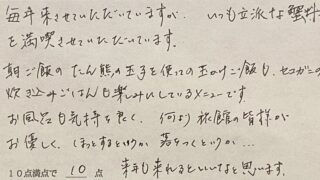 毎年来させていただいていますが、いつも立派な蟹料
を満喫させていただいています。
朝ご飯のたん熊の玉子を使っての玉かけご飯も、セコガニの
炊き込みごはんも楽しみにしているメニューです
お風呂も気持ち良く、何より旅館の皆様が
お優しく、ほっとするというか
来年も来れるといいなと思います。
10点満点で 10 点